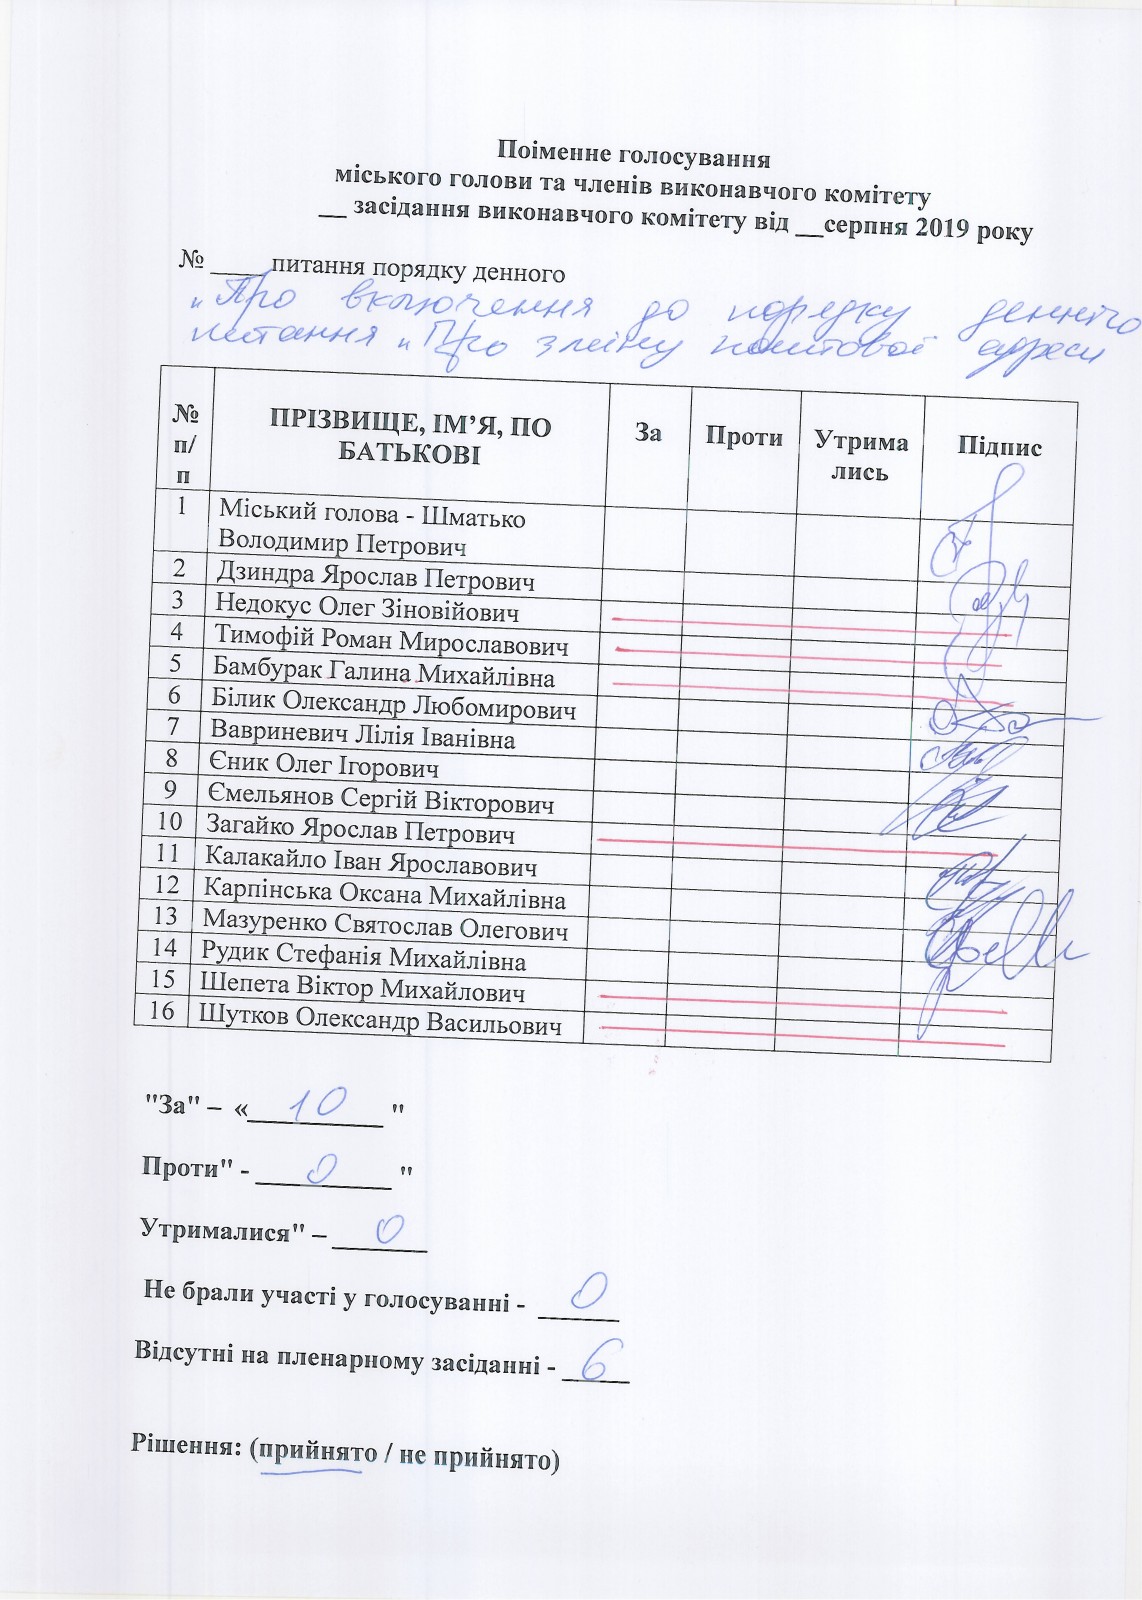 Поіменне голосування
міського голови та членів виконавчого комітету
__ засідання виконавчого комітету від __серпня 2019 року
№ ____ питання порядку денного
„Про включення до порядку денного
питання „Про зміну поштової адреси
№ п/п ПРІЗВИЩЕ, ІМ’Я, ПО БАТЬКОВІ За Проти Утрима лись Підпис
1 Міський голова - Шматько
Володимир Петрович
2 Дзиндра Ярослав Петрович
3 Недокус Олег Зіновійович
4 Тимофій Роман Мирославович
5 Бамбурак Галина Михайлівна
6 Білик Олександр Любомирович
7 Вавриневич Лілія Іванівна
8 Єник Олег Ігорович
9 Ємельянов Сергій Вікторович
10 Загайко Ярослав Петрович
11 Калакайло Іван Ярославович
12 Карпінська Оксана Михайлівна
13 Мазуренко Святослав Олегович
14 Рудик Стефанія Михайлівна
15 Шепета Віктор Михайлович
16 Шутков Олександр Васильович
"За" – «___10___ "
Проти" - ___0___ "
Утрималися" – ___0___
Не брали участі у голосуванні - __0__
Відсутні на пленарному засіданні - _6_
Рішення: (прийнято / не прийнято)